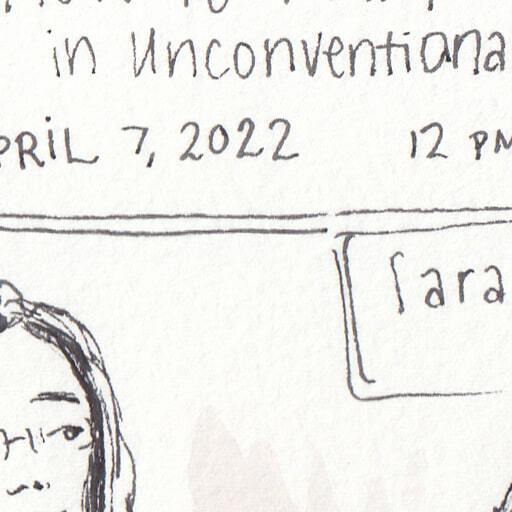 in Unconventiona
APRIL 7, 2022 12 PM
Sara